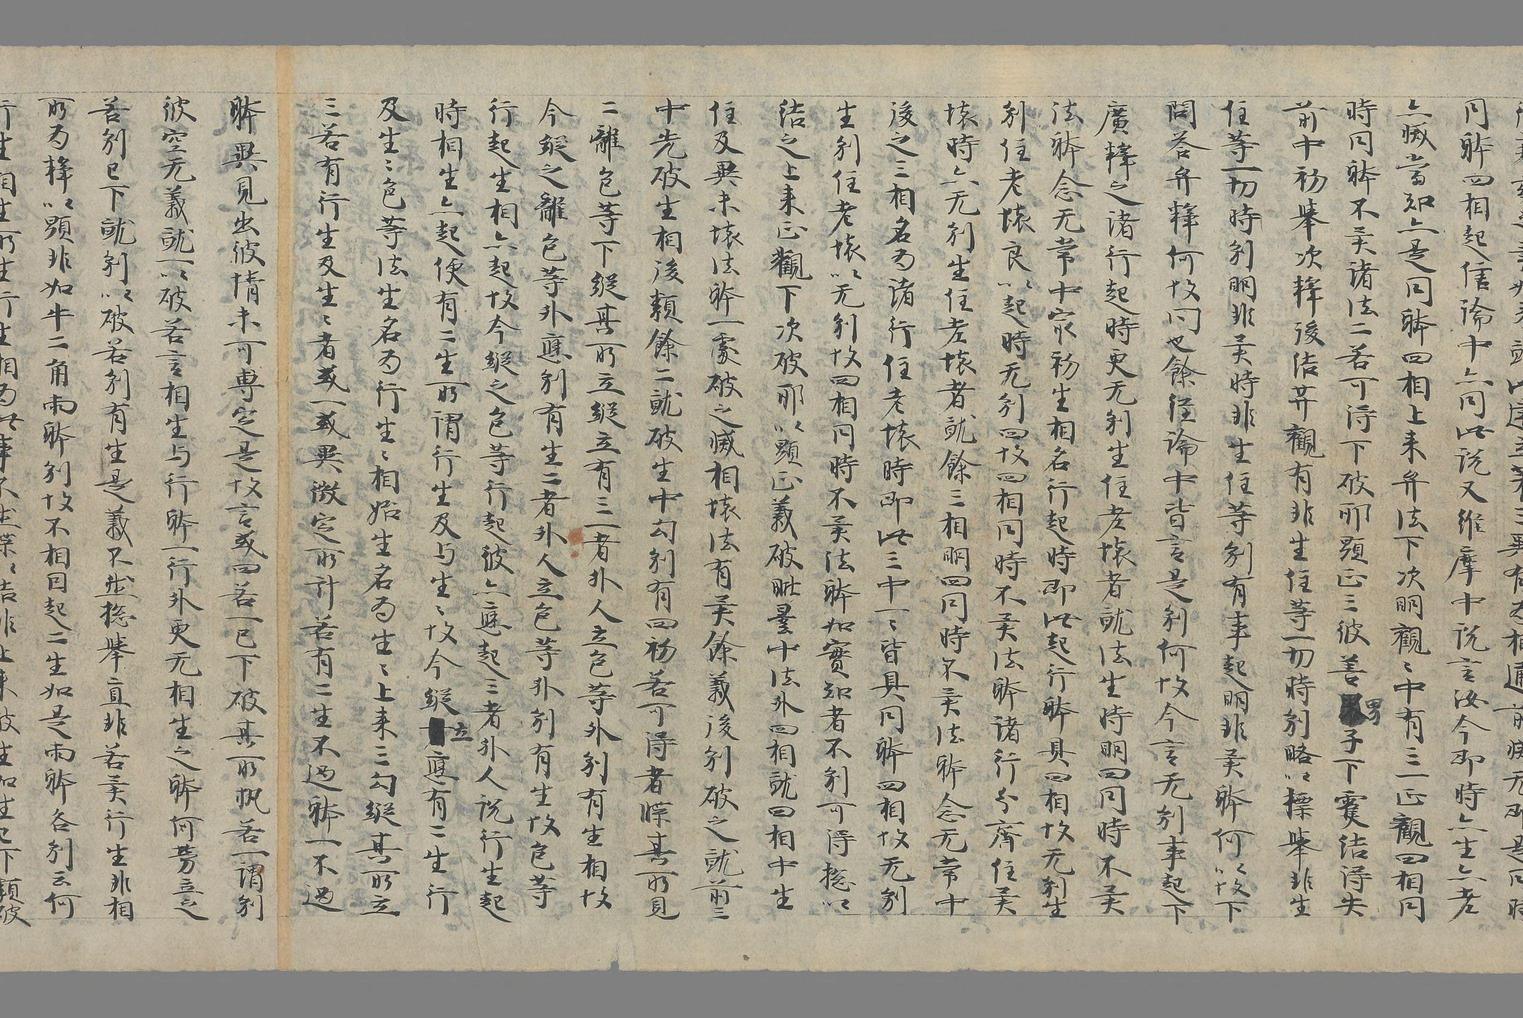 同躰四相起信論中亦同此說又維摩中說言汝今即時亦生亦老
亦滅當知亦是同躰四相上來弁法下次明觀〻中有三一正觀四相同
時同躰不異諸法二若可得下破耶顯正三彼善男子下案結得失
前中初舉次釋後結其觀有非生住等一切時別略以標舉非生
住等一切時別明非異時非生住等別有事起明非異躰何以故下
問答弁釋何故問也餘經論中皆言是別何故今言无別事起下
廣釋之諸行起時更无別生住老壞者就法生時明四同時不異
法躰念无常中家初生相名行起時即此起行躰具四相故无別生
別住老壞良以起時无別四故四相同時不異法躰諸行兮齊住異
壞時亦无別生住老壞者就餘三相明四同時不異法躰念无常中
後之三相名為諸行住老壞時即此三中一〻皆具同躰四相故无別
生別住老壞以无別故四相同時不異法躰如實知者不別可得捴以
結之上來正觀下次破耶以顯正義破毗曇中法外四相就四相中生
住及異未壞法躰一處破之滅相壞法有異餘義後別破之就前三
中先破生相後類餘二就破生中勾別有四初若可得者牒其所見
二離色等下縱其所立縱立有三一者外人立色等外別有生相故
今縱之離色等外應別有生二者外人立色等外別有生故色等
行起生相亦起故今縱之色等行起彼亦應起三者外人說行生起
時相生亦起便有二生所謂行生及与生〻故今縱立應有二生行
及生〻色等法生名為行生〻相始生名為生〻上來三勾縱其所立
三若有行生及生〻者或一或異徵定所計若有二生不過躰一不過
躰異見出彼情未可專定是故言或四若一已下破其所執若一謂別
彼空无義就一以破若言相生与行躰一行外更无相生之躰何勞立之
若別已下就別以破若別有生是義不然捴舉直非若異行生非相
所為釋以顯非如牛二角兩躰別故不相因起二生如是兩躰各別云何